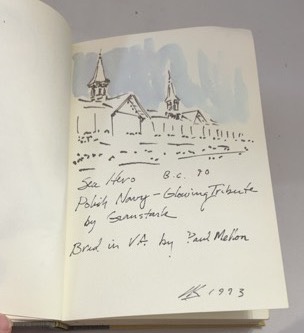 Sea Hero B.C. 90
Polish Navy - Glowing Tribute
by Graustark
Bred in VA by Paul Mellon
1993